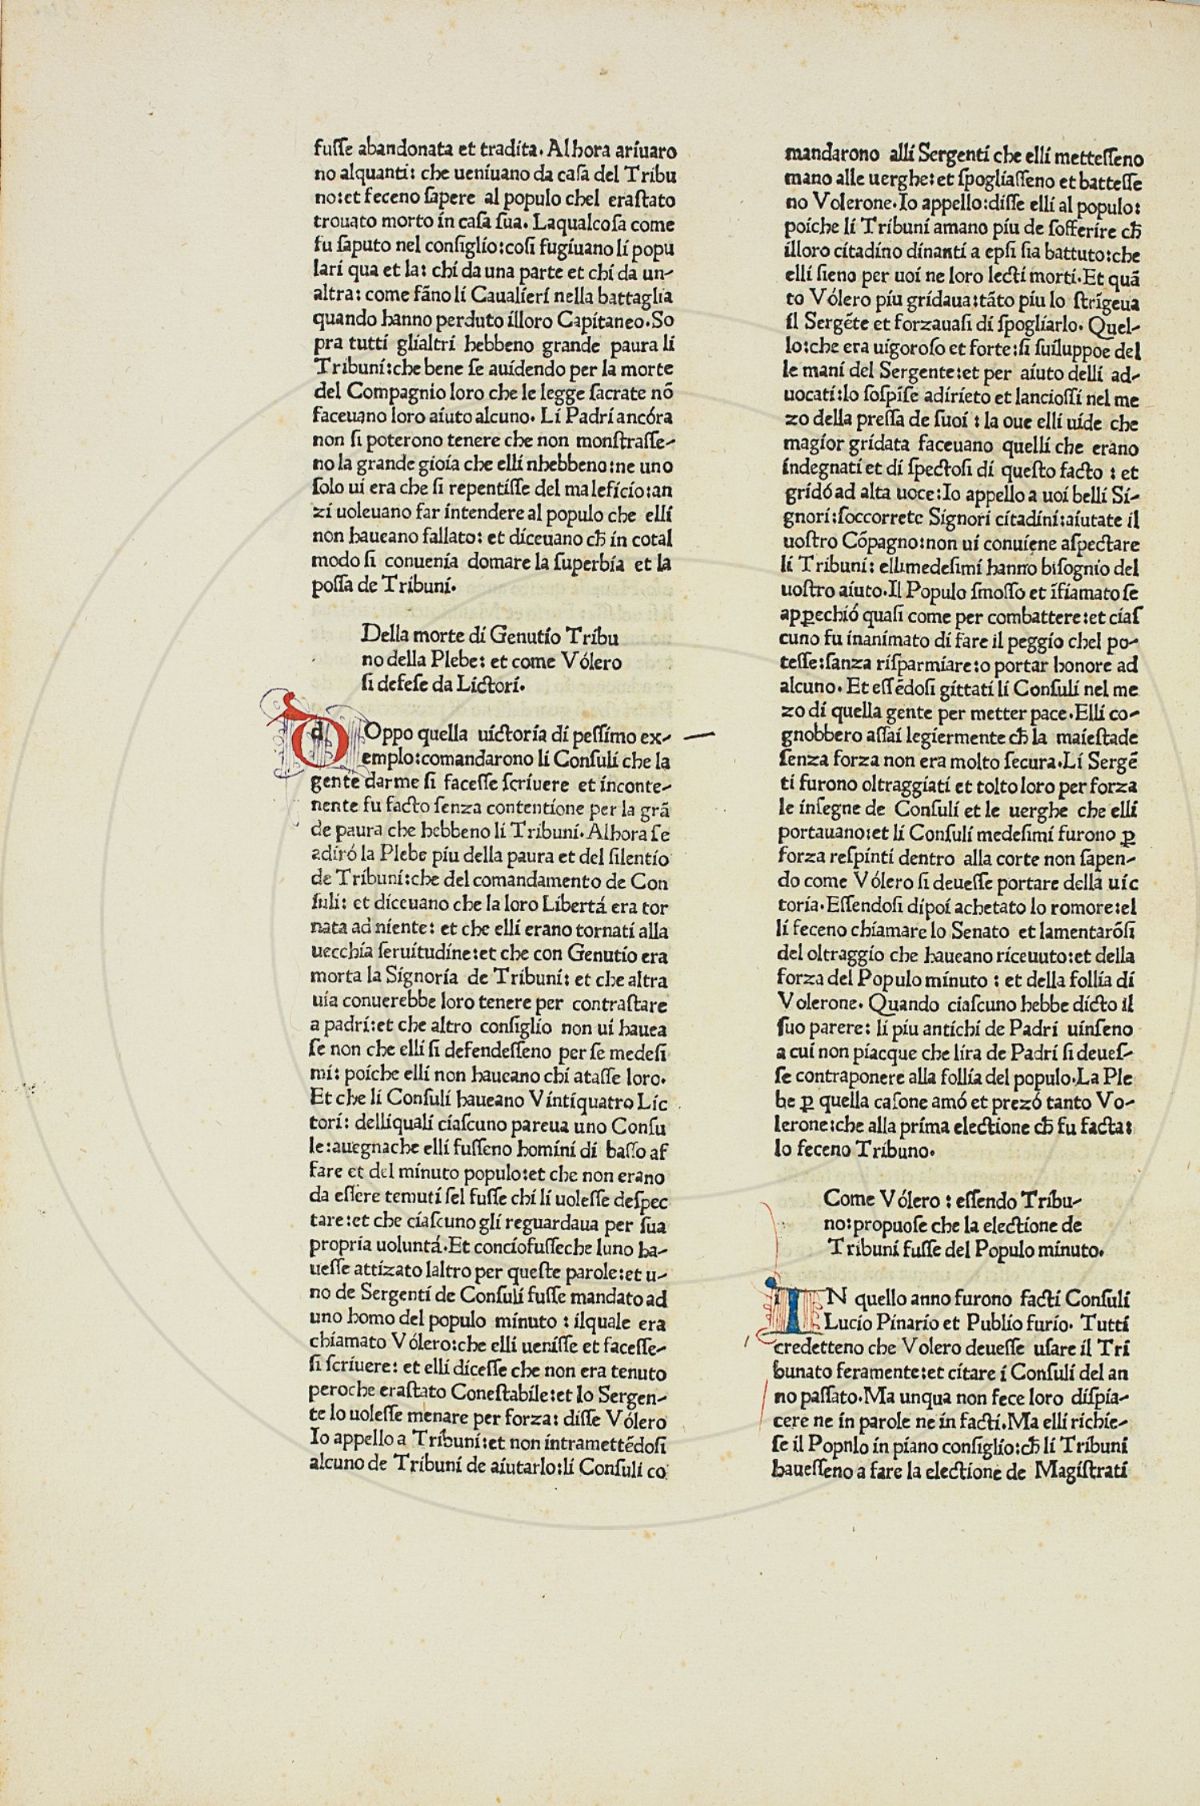 fusse abandonata et tradita. Alhora ariuaro
no alquanti: che ueniuano da casa del Tribu
no: et feceno sapere al populo chel erastato
trouato morto in casa sua. Laqualcosa come
fu saputo nel consiglio: cosi fugiuano li popu
lari qua et la: chi da una parte et chi da un-
altra: come fãno li Caualieri nella battaglia
quando hanno perduto illoro Capitaneo. So
pra tutti glialtri hebbeno grande paura li
Tribuni: che bene se auidendo per la morte
del Compagnio loro che le legge sacrate nõ
faceuano loro aiuto alcuno. Li Padri ancóra
non si poterono tenere che non monstrasse-
no la grande gioia che elli nhebbeno: ne uno
solo ui era che si repentisse del maleficio: an
zi uoleuano far intendere al populo che elli
non haueano fallato: et diceuano cħ in cotal
modo si conuenia domare la superbia et la
possa de Tribuni.
Della morte di Genutio Tribu
no della Plebe: et come Vólero
si defese da Lictori.
dOppo quella uictoria di pessimo ex-
emplo: comandarono li Consuli che la
gente darme si facesse scriuere et inconte-
nente fu facto senza contentione per la grã
de paura che hebbeno li Tribuni. Alhora se
adiró la Plebe piu della paura et del silentio
de Tribuni: che del comandamento de Con
suli: et diceuano che la loro Libertá era tor
nata ad niente: et che elli erano tornati alla
uecchia seruitudine: et che con Genutio era
morta la Signoria de Tribuni: et che altra
uia conuerebbe loro tenere per contrastare
a padri: et che altro consiglio non ui hauea
se non che elli si defendesseno per se medesi
mi: poiche elli non haueano chi atasse loro.
Et che li Consuli haueano Vintiquatro Lic
tori: delliquali ciascuno pareua uno Consu
le: auegnache elli fusseno homini di basso af
fare et del minuto populo: et che non erano
da essere temuti sel fusse chi li uolesse despec
tare: et che ciascuno gli reguardaua per sua
propria uoluntá. Et conciofusseche luno ha-
uesse attizato laltro per queste parole: et u-
no de Sergenti de Consuli fusse mandato ad
uno homo del populo minuto: ilquale era
chiamato Vólero: che elli uenisse et facesse-
si scriuere: et elli dicesse che non era tenuto
peroche erastato Conestabile: et lo Sergen-
te lo uolesse menare per forza: disse Vólero
Io appello a Tribuni: et non intramettẽdosi
alcuno de Tribuni de aiutarlo: li Consuli co
mandarono alli Sergenti che elli mettesseno
mano alle uerghe: et spogliasseno et battesse
no Volerone. Io appello: disse elli al populo:
poiche li Tribuni amano piu de sofferire cħ
illoro citadino dinanti a epsi sia battuto: che
elli sieno per uoi ne loro lecti morti. Et quã
to Vólero piu gridaua: tãto piu lo strigeua
il Sergẽte et forzauasi di spogliarlo. Quel-
lo: che era uigoroso et forte: si suiluppoe del
le mani del Sergente: et per aiuto delli ad-
uocati: lo sospise adirieto et lanciossi nel me
zo della pressa de suoi: la oue elli uide che
magior gridata faceuano quelli che erano
indegnati et di spectosi di questo facto: et
gridó ad alta uoce: Io appello a uoi belli Si-
gnori: soccorrete Signori citadini: aiutate il
uostro Cõpagno: non ui conuiene aspectare
li Tribuni: ellimedesimi hanno bisognio del
uostro aiuto. Il Populo smosso et ifiamato se
apꝑechió quasi come per combattere: et cias
cuno fu inanimato di fare il peggio chel po-
tesse: sanza risparmiare: o portar honore ad
alcuno. Et essẽdosi gittati li Consuli nel me
zo di quella gente per metter pace. Elli co-
gnobbero assai legiermente cħ la maiestade
senza forza non era molto secura. Li Sergẽ
ti furono oltraggiati et tolto loro per forza
le insegne de Consuli et le uerghe che elli
portauano: et li Consuli medesimi furono ꝑ
forza respinti dentro alla corte non sapen-
do come Vólero si deuesse portare della uic
toria. Essendosi dipoi achetato lo romore: el
li feceno chiamare lo Senato et lamentarõsi
del oltraggio che haueano riceuuto: et della
forza del Populo minuto: et della follia di
Volerone. Quando ciascuno hebbe dicto il
suo parere: li piu antichi de Padri uinseno
a cui non piacque che lira de Padri si deues-
se contraponere alla follia del populo. La Ple
be ꝑ quella casone amó et prezó tanto Vo-
lerone: che alla prima electione cħ fu facta:
lo feceno Tribuno.
Come Vólero: essendo Tribu-
no: propuose che la electione de
Tribuni fusse del Populo minuto.
iIN quello anno furono facti Consuli
Lucio Pinario et Publio furio. Tutti
credetteno che Volero deuesse usare il Tri
bunato feramente: et citare i Consuli del an
no passato. Ma unqua non fece loro dispia-
cere ne in parole ne in facti. Ma elli richie-
se il Popnlo in piano consiglio: cħ li Tribuni
hauesseno a fare la electione de Magistrati